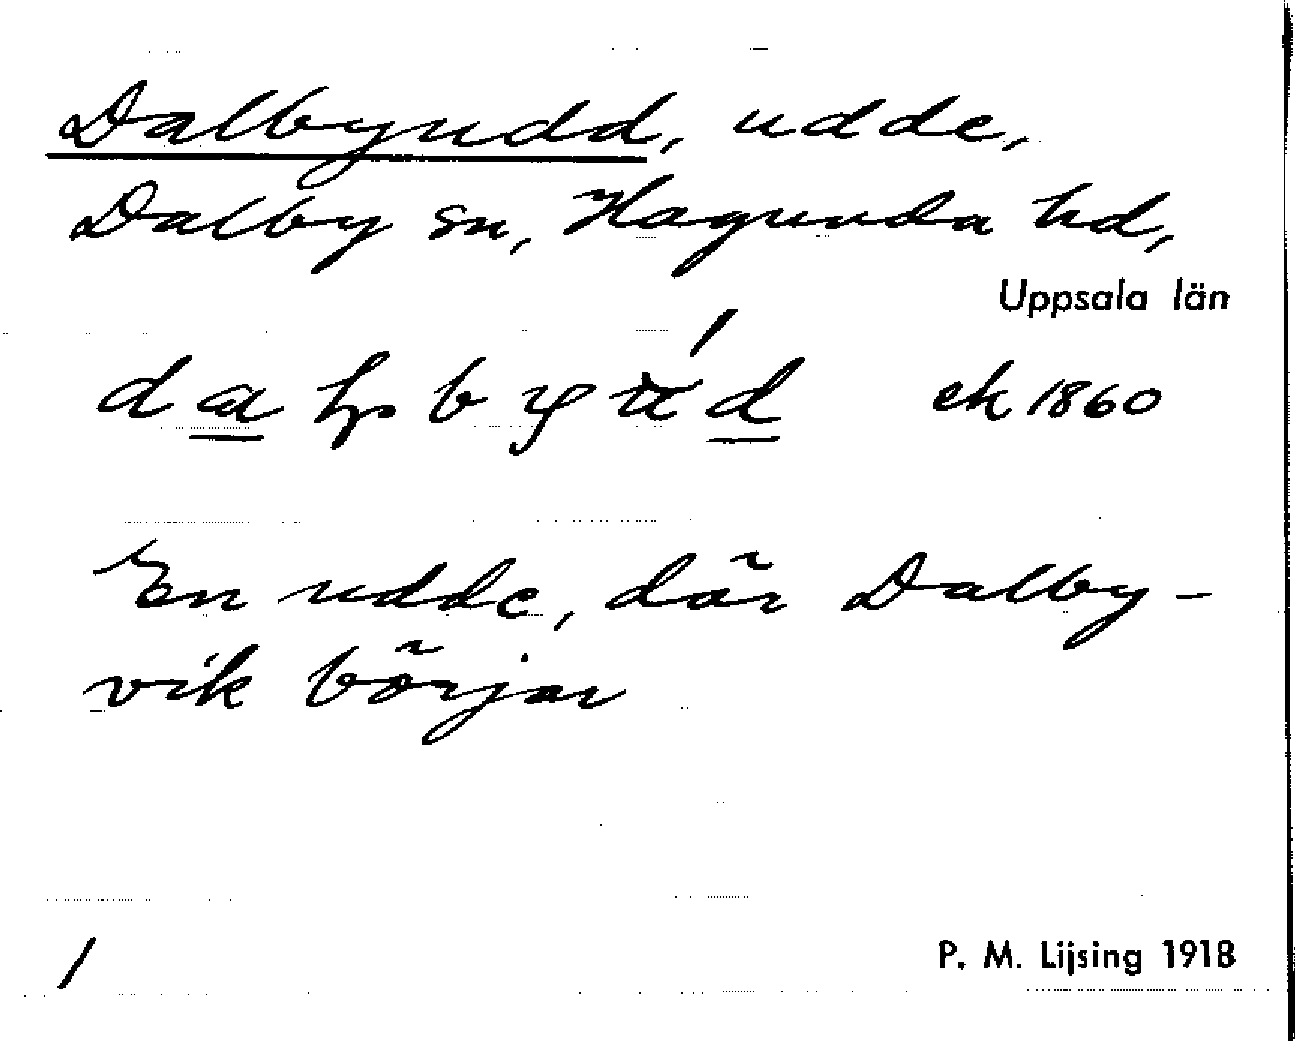 Dalbyudd, udde,
Dalby sn, Hagunda hd,
Uppsala län
ek 1860
En udde, där Dalby-
vik börjar
1
P. M. Lijsing 1918